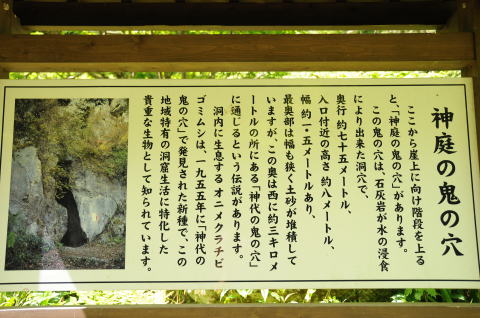 神庭の鬼の穴
ここから崖上に向け階段を上る
と、「神庭の鬼の穴」があります。
この鬼の穴は、石灰岩が水の浸食
により出来た洞穴で、
奥行 約七十五メートル
入口付近の高さ 約八メートル、
幅 約一・五メートルあり、
最奥部は幅も狭く土砂が堆積して
いますが、この奥は西に約三キロメ
ートルの所にある「神代の鬼の穴」
に通じるという伝説があります。
洞内に生息するオニメクラチビ
ゴミムシは、一九五五年に「神代の
鬼の穴」で発見された新種で、この
地域特有の洞窟生活に特化した
貴重な生物として知られています。